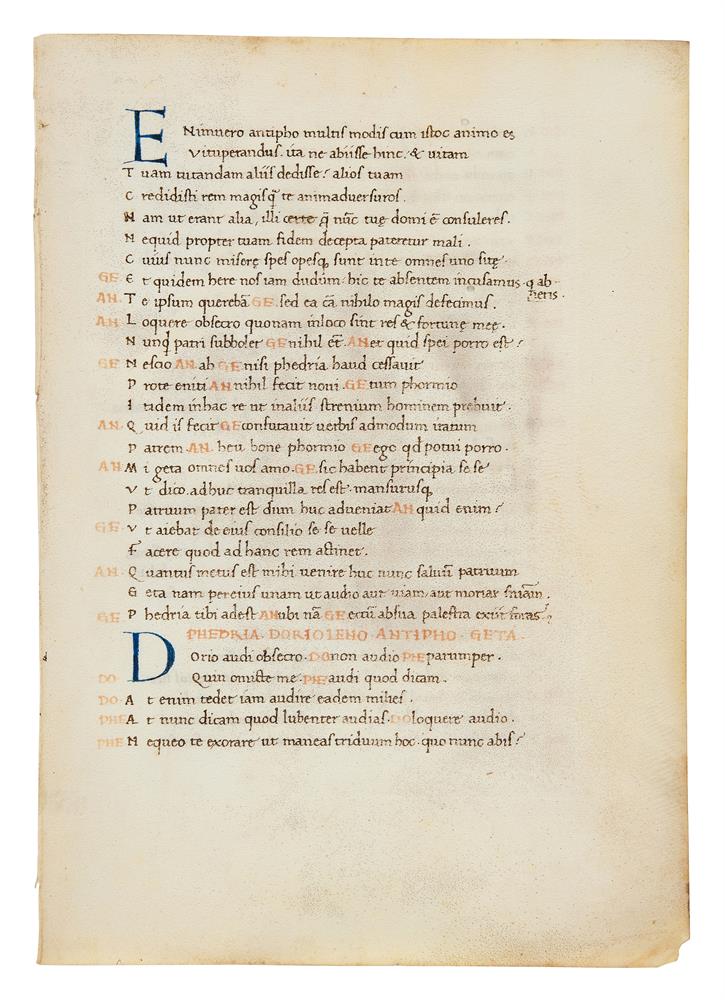 ENimuero antipho multis modis cum istoc animo es
Vituperandus. ita ne abiisse hinc. & uitam
Tuam tutandam aliis dedisse? alios tuam
Credidisti rem magisq̃ te animaduersuros.
Nam ut erant alia, illi certe q̃ nũc tuę domi ẽ consuleres.
Nequid propter tuam fidem decepta pateretur mali.
Cuius nunc miserę spes opesq; sunt in te omnes uno sitę.
GE. Et quidem here nos iam dudum. hic te absentem incusamus. q ab-
ieris.
AN. Te ipsum querebã GE. sed ea cã nihilo magis defecimus.
AN. Loquere obsecro quonam in loco sint res & fortunę meę.
Nunq̃d patri subbolet GE nihil ẽt. AN et quid spei porro est?
GE Nescio AN. ah GE nisi phedria haud cessauit
Pro te eniti AN nihil fecit noui. GE tum phormio
Itidem in hac re ut in aliis strenium hominem prebuit.
AN. Quid is fecit GE confutauit uerbis admodum iratum
Patrem. AN. heu bone phormio GE ego qd̃ potui porro.
AN Mi geta omnes uos amo. GE. sic habent principia se se
Vt dico. adhuc tranquilla res est. mansurusq;
Patruum pater est dum huc adueniat AN quid enim?
GE. Vt aiebat de eius consilio se se uelle
Facere quod ad hanc rem attinet.
AN. Quantus metus est mihi uenire huc nunc saluũ patruum
Geta nam per eius unam ut audio aut uiam, aut moriar sñiam.
GE. Phedria tibi adest AN ubi nã GE eccũ ab sua palestra exiit foras?
PHEDRIA. DORIO LENO. ANTIPHO. GETA.
DOrio audi obsecro. DO non audio PHE parumper.
DO. Quin omitte me. PHE audi quod dicam.
DO. At enim tedet iam audire eadem milies.
PHE At nunc dicam quod lubenter audias. DO loquere audio.
PHE Nequeo te exorare ut maneas triduum hoc. quo nunc abis?